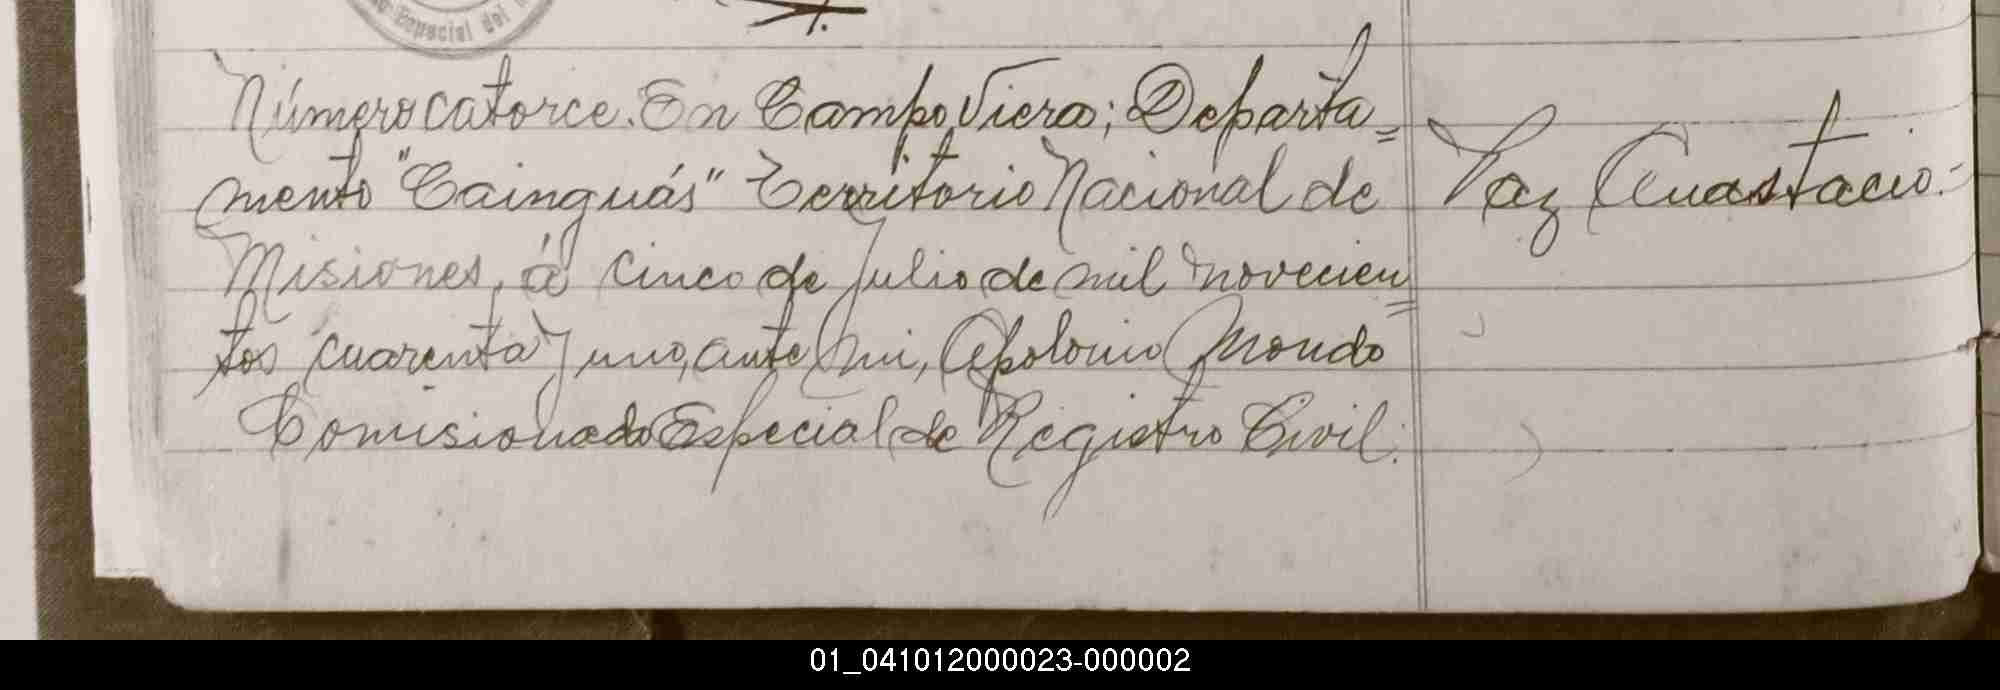 Especial del
Número catorce. En Campo Viera; Departa=
mento "Cainguás" Territorio Nacional de
Misiones, á cinco de Julio de mil novecien=
tos cuarenta y uno, ante mi, Apolonio Mondo
Comisionado Especial de Registro Civil.
Vaz Anastacio.-
01_041012000023-000002